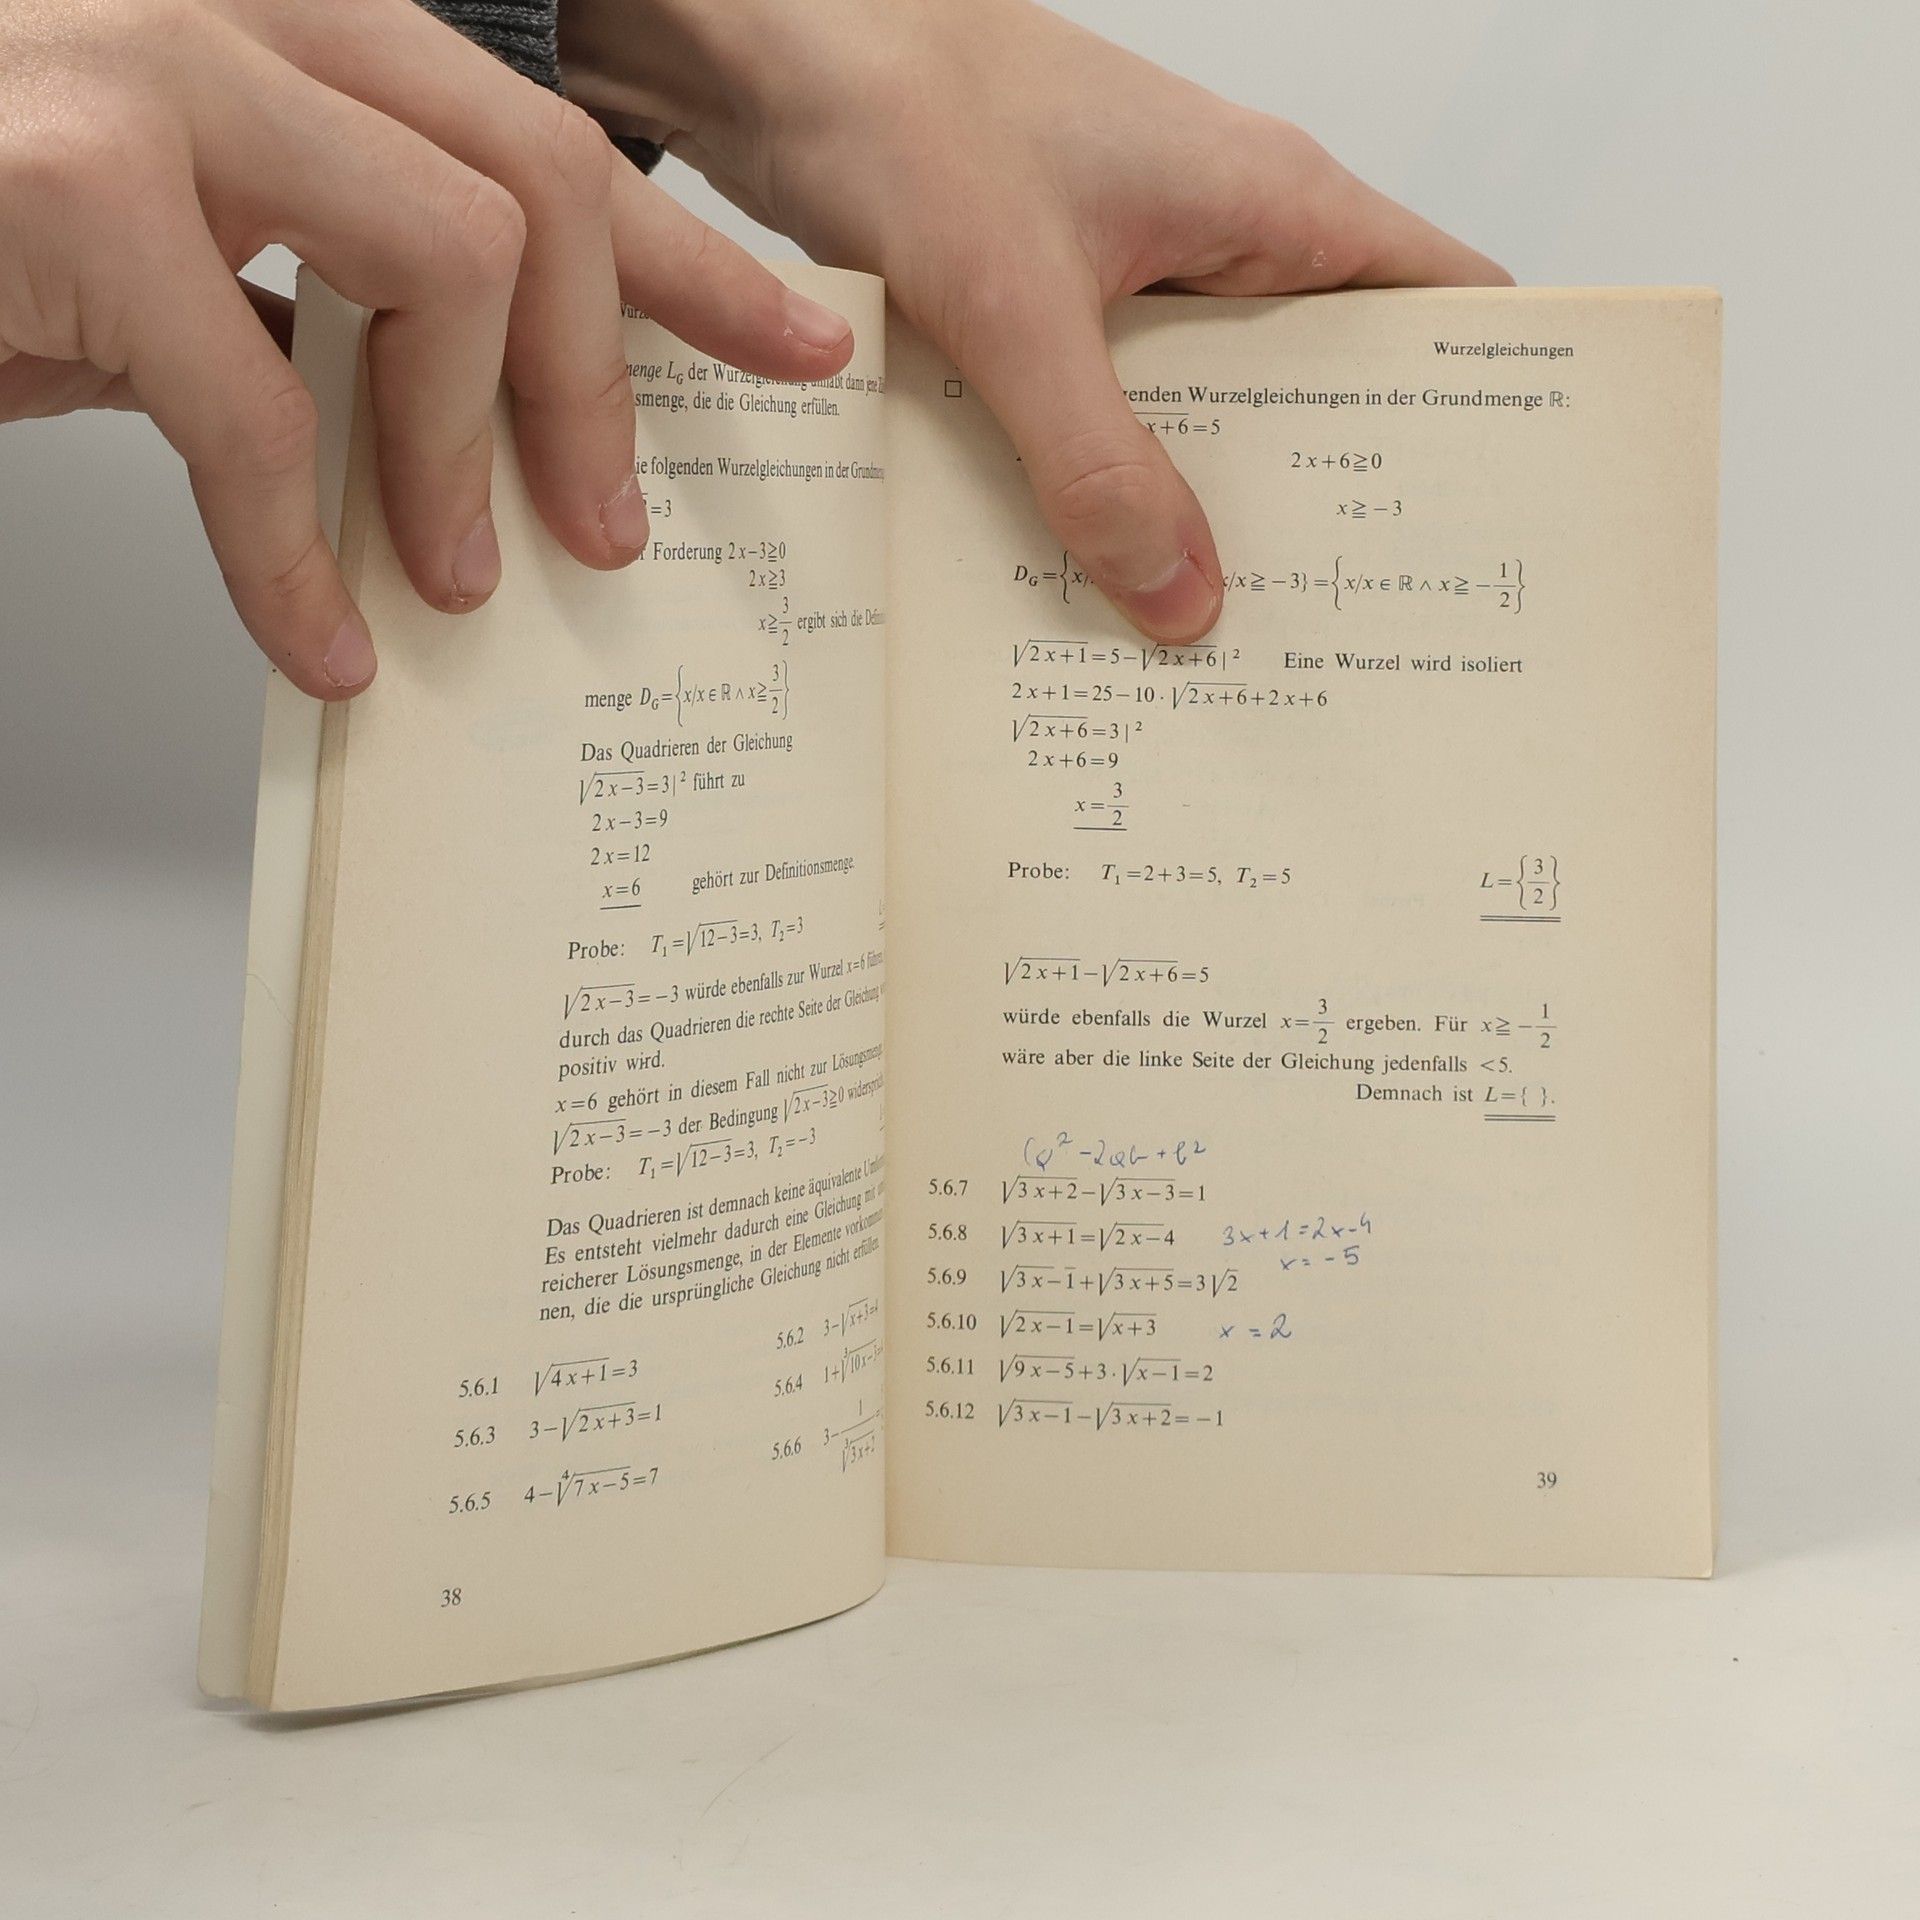 L_G der
smenge, die die Gleichung erfüllen.
folgenden Wurzelgleichungen in der
=3
Forderung 2x−3≧0
2x≧3
x≧3/2 ergibt sich die
menge D_G={x/x∈ℝ∧x≧3/2}
Das Quadrieren der Gleichung
√(2x−3)=3|² führt zu
2x−3=9
2x=12
x=6 gehört zur Definitionsmenge.
Probe: T₁=√(12−3)=3, T₂=3
√(2x−3)=−3 würde ebenfalls zur Wurzel x=6
durch das Quadrieren die rechte Seite der Gleichung
positiv wird.
x=6 gehört in diesem Fall nicht zur
√(2x−3)=−3 der Bedingung √(2x−3)≧0
Probe: T₁=√(12−3)=3, T₂=−3
Das Quadrieren ist demnach keine äquivalente
Es entsteht vielmehr dadurch eine Gleichung mit
reicherer Lösungsmenge, in der Elemente
nen, die die ursprüngliche Gleichung nicht erfüllen.
5.6.1 √(4x+1)=3 5.6.2 3−√(x+3)=
5.6.3 3−√(2x+3)=1 5.6.4
5.6.5 4−⁴√(7x−5)=7 5.6.6
38
Wurzelgleichungen
Wurzelgleichungen in der Grundmenge ℝ:
x+6=5
2x+6≧0
x≧−3
D_G={x/ x/x≧−3}={x/x∈ℝ∧x≧−1/2}
√(2x+1)=5−√(2x+6)|² Eine Wurzel wird isoliert
2x+1=25−10·√(2x+6)+2x+6
√(2x+6)=3|²
2x+6=9
x=3/2
Probe: T₁=2+3=5, T₂=5 L={3/2}
√(2x+1)−√(2x+6)=5
würde ebenfalls die Wurzel x=3/2 ergeben. Für x≧−1/2
wäre aber die linke Seite der Gleichung jedenfalls <5.
Demnach ist L={ }.
a²−2ab+b²
5.6.7 √(3x+2)−√(3x−3)=1
5.6.8 √(3x+1)=√(2x−4) 3x+1=2x−4
x=−5
5.6.9 √(3x−1)+√(3x+5)=3√2
5.6.10 √(2x−1)=√(x+3) x=2
5.6.11 √(9x−5)+3·√(x−1)=2
5.6.12 √(3x−1)−√(3x+2)=−1
39